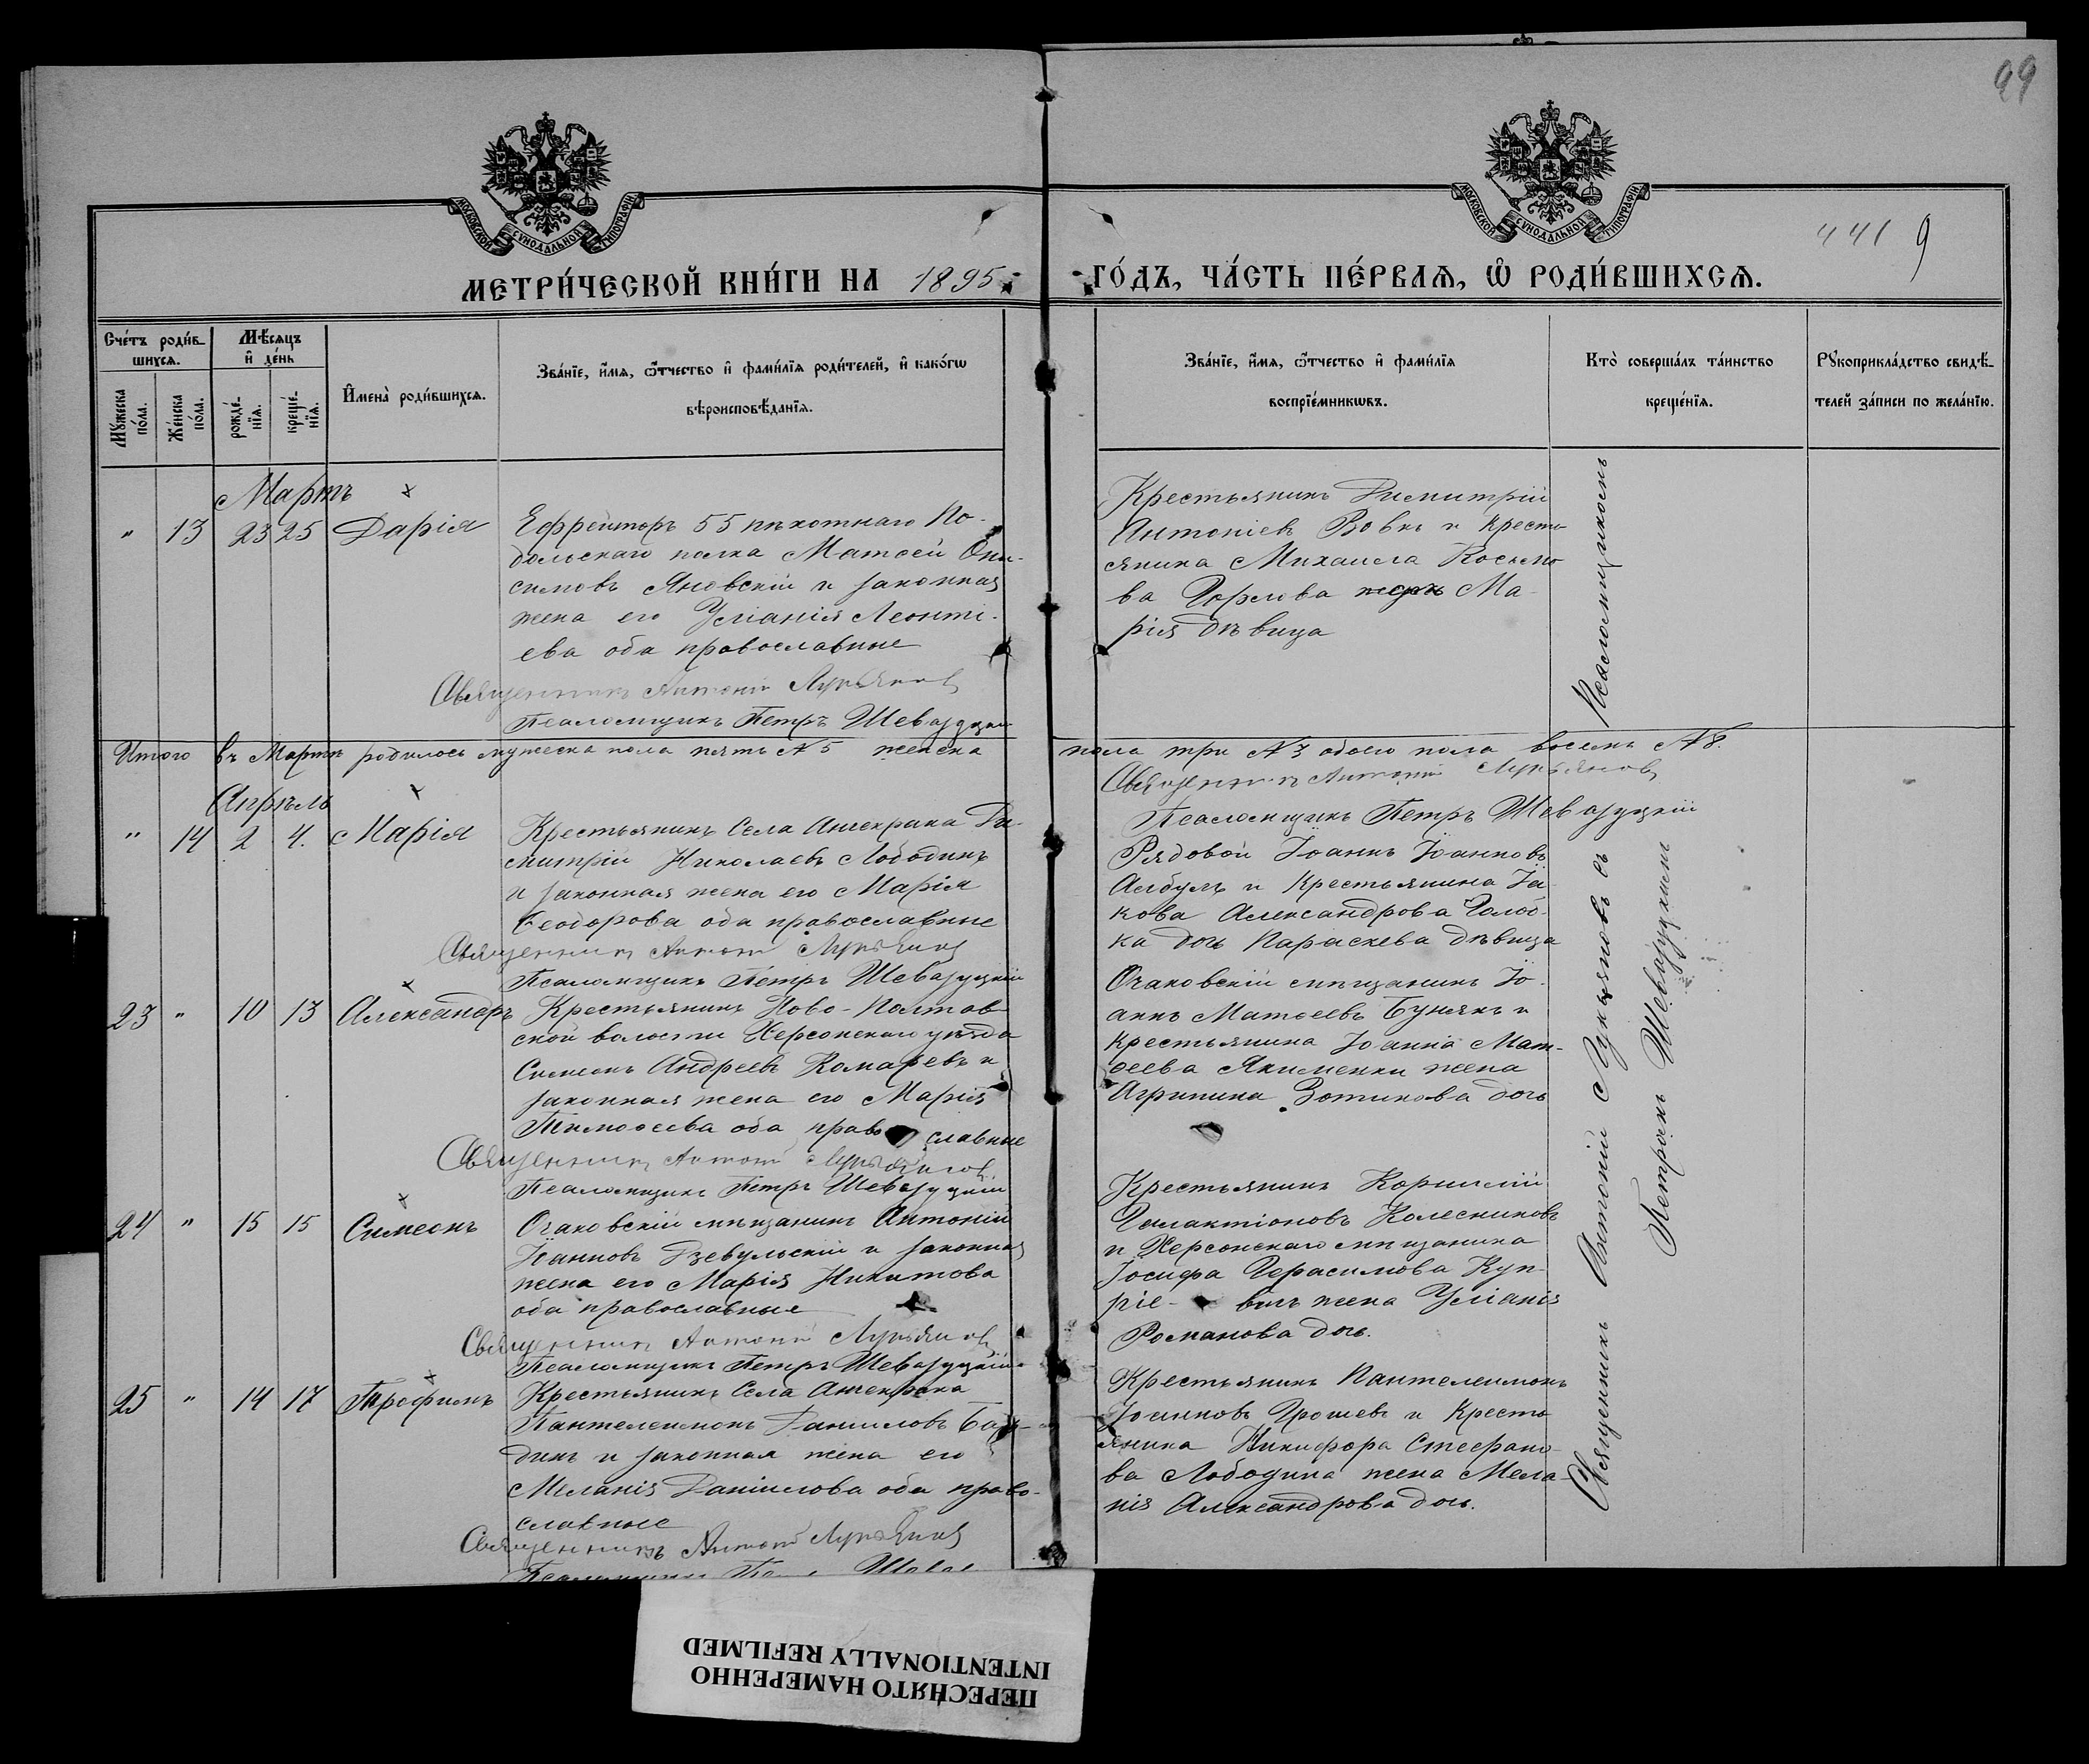 99
МОСКОВСКОЙ СУНОДАЛЬНОЙ ТИПОГРАФІИ
МОСКОВСКОЙ СУНОДАЛЬНОЙ ТИПОГРАФІИ
441 9
МЕТРИ́ЧЕСКОЙ КНИ́ГИ НА 1895 ГО́ДЪ, ЧА́СТЬ ПЕ́РВАѦ, Ѡ РОДИ́ВШИХСѦ.
Сче́тъ роди́в-
шихсѧ.
Мꙋ́жеска по́ла.
Же́нска по́ла.
Мѣ́сѧцъ
и҆ де́нь
рожде́-
нїѧ.
креще́-
нїѧ.
И҆мена̀ роди́вшихсѧ.
Зва́нїе, и҆́мѧ, ѻ҆́тчество и҆ фами́лїѧ роди́телей, и҆ како́гѡ
вѣроисповѣ́данїѧ.
Зва́нїе, и҆́мѧ, ѻ҆́тчество и҆ фами́лїѧ
воспрїе́мникѡвъ.
Кто̀ соверша́лъ та́инство
креще́нїѧ.
Рꙋкоприкла́дство свидѣ́-
телей за́писи по жела́нїю.
Мартъ
" 13 23 25 Дарія
Ефрейторъ 55 пѣхотнаго По-
дольскаго полка Матѳей Они-
симовъ Яновскій и законная
жена его Уліанія Леонті-
ева оба православные
Священникъ Антоній Лукьянов
Псаломщикъ Петръ Шевазуцкій
Крестьянинъ Димитрій
Антоніевъ Вовкъ и кресть-
янина Михаила Косьмо
ва Горлова Ма-
рія дѣвица
Итого въ Мартѣ родилось мужеска пола пять №5 женска пола три №3 обоего пола восемь №8.
Священникъ Антоній Лукьянов
Псаломщикъ Петръ Шевазуцкій
Апрѣль
" 14 2 4. Марія
Крестьянинъ Села Анчекрака Ди-
митрій Николаевъ Лободинъ
и законная жена его Марія
Ѳеодорова оба православные
Священникъ Антоній Лукьянов
Псаломщикъ Петръ Шевазуцкій
Рядовой Іоаннъ Іоанновъ
Албулъ и Крестьянина Іа-
кова Александрова Голоб-
ка дочь Параскева дѣвица
23 " 10 13 Александръ
Крестьянинъ Ново-Полтав-
ской волости Херсонскаго уѣзда
Симеонъ Андреевъ Комаревъ и
законная жена его Марія
Тимоѳеева оба православные
Священникъ Антоній Лукьянов
Псаломщикъ Петръ Шевазуцкій
Очаковскій мѣщанинъ Іо-
аннъ Матѳеевъ Бунякъ и
крестьянина Іоанна Мат-
ѳеева Якименки жена
Агрипина Зотикова дочь
24 " 15 15 Симеонъ
Очаковскій мѣщанинъ Антоній
Іоанновъ Дзевульскій и законная
жена его Марія Никитова
оба православные
Священникъ Антоній Лукьянов
Псаломщикъ Петръ Шевазуцкій
Крестьянинъ Корнилій
Галактіоновъ Колесниковъ
и Херсонскаго мѣщанина
Іосифа Герасимова Куп-
ріе- вичъ жена Уліанія
Романова дочь.
25 " 14 17 Трофимъ
Крестьянинъ Села Анчекрака
Пантелеимонъ Данииловъ
динъ и законная жена его
Меланія Даніилова оба право-
славные
Священникъ Антоній Лукьянов
Псаломщикъ
Крестьянинъ Пантелеимонъ
Іоанновъ Грошевъ и Кресть
янина Никифора Стефано-
ва Лободина жена Мела-
нія Александрова дочь.
Священникъ Антоній Лукьяновъ съ Псаломщикомъ
Петромъ Шевазуцкимъ
ПЕРЕСНЯТО НАМЕРЕННО
INTENTIONALLY REFILMED